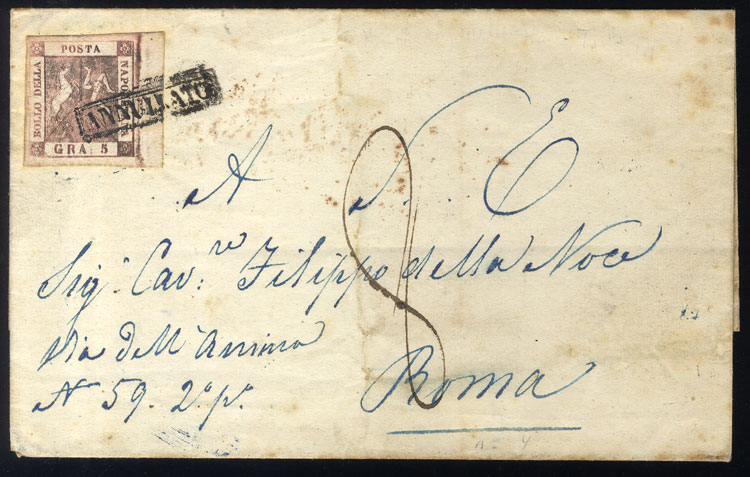 POSTA
BOLLO DELLA
NAPO
GRA 5
ANNULLATO
A S. E.
8
Sig.r Cav.re Filippo della Noce
Via dell'Anima
N° 59. 2° p°
Roma